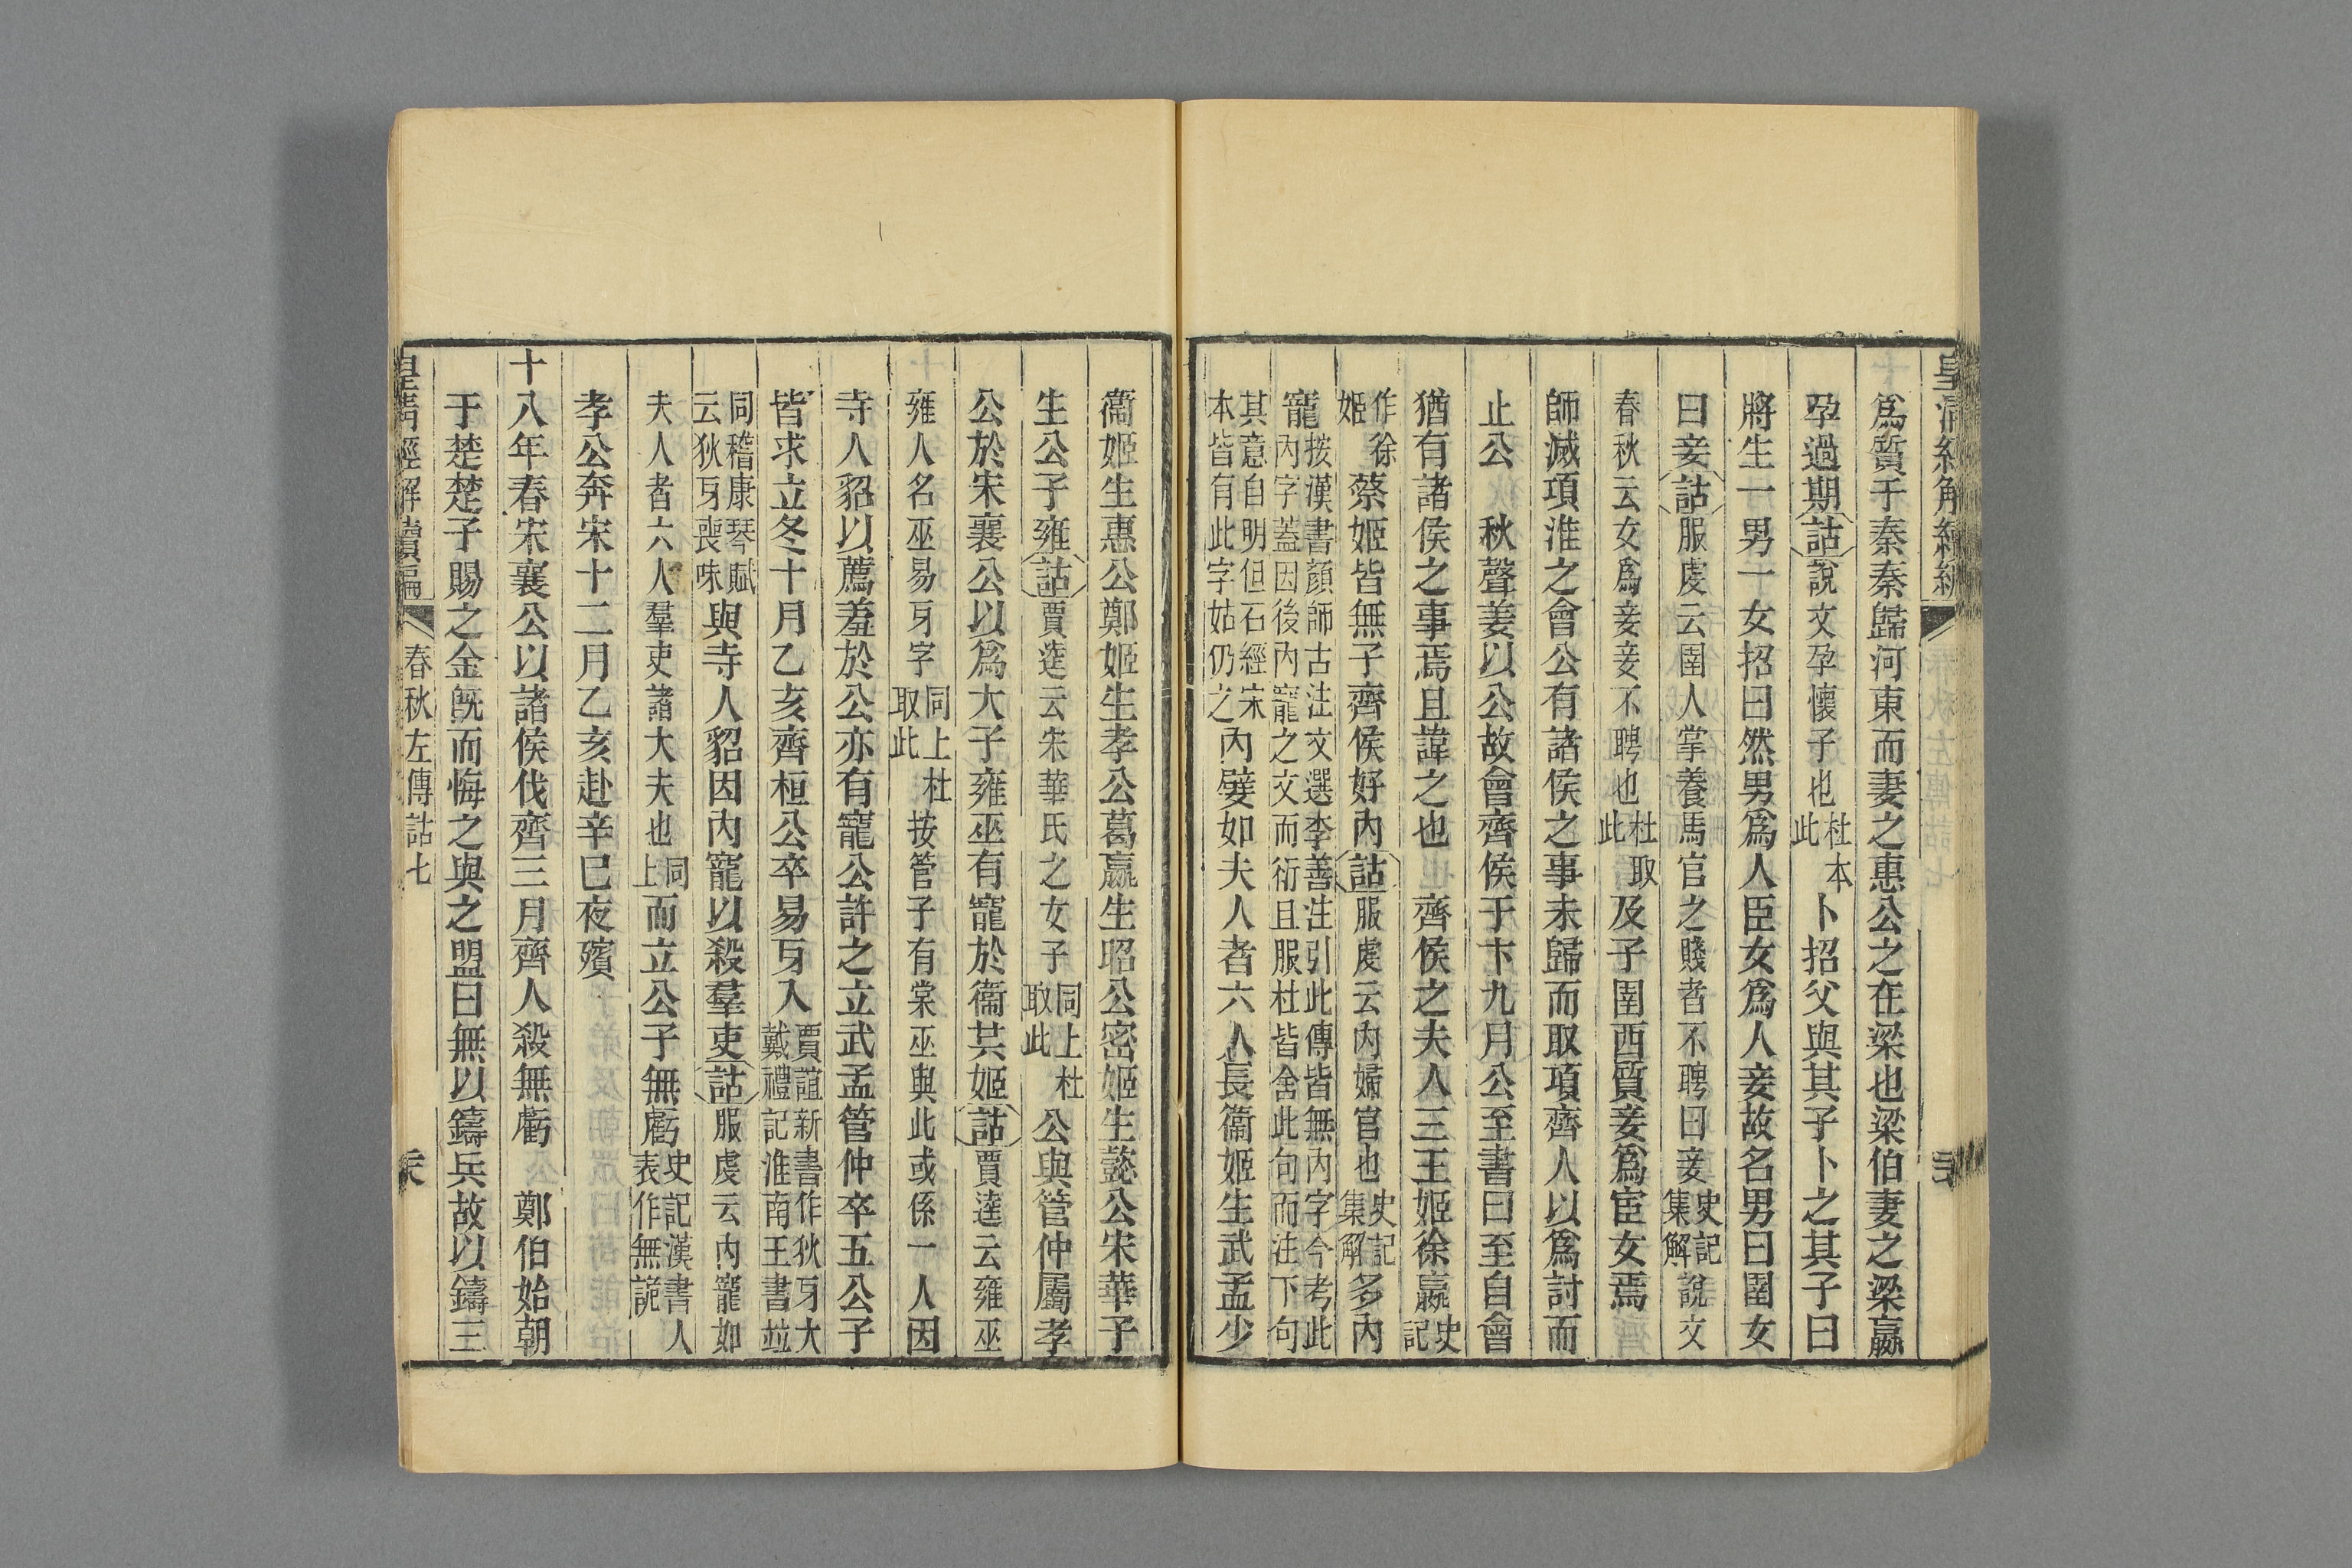 皇清經解續編
爲質于秦秦歸河東而妻之惠公之在梁也梁伯妻之梁嬴
孕過期詁說文孕懷子也杜本此卜招父與其子卜之其子曰
將生一男一女招曰然男爲人臣女爲人妾故名男曰圉女
曰妾詁服虔云圉人掌養馬官之賤者不聘曰妾史記集解說文
春秋云女爲妾妾不聘也杜取此及子圉西質妾爲宦女焉
師滅項淮之會公有諸侯之事未歸而取項齊人以爲討而
止公　秋聲姜以公故會齊侯于卞九月公至書曰至自會
猶有諸侯之事焉且諱之也　齊侯之夫人三王姬徐嬴史記
作徐姬蔡姬皆無子齊侯好內詁服虔云內婦官也史記集解多內
寵按漢書顏師古注文選李善注引此傳皆無內字今考此內字蓋因後內寵之文而衍且服杜皆舍此句而注下句
其意自明但石經宋本皆有此字姑仍之內嬖如夫人者六人長衞姬生武孟少
衞姬生惠公鄭姬生孝公葛嬴生昭公密姬生懿公宋華子
生公子雍詁賈逵云宋華氏之女子同上杜取此公與管仲屬孝
公於宋襄公以爲大子雍巫有寵於衞共姬詁賈逵云雍巫
雍人名巫易牙字同上杜取此按管子有棠巫與此或係一人因
寺人貂以薦羞於公亦有寵公許之立武孟管仲卒五公子
皆求立冬十月乙亥齊桓公卒易牙入賈誼新書作狄牙大戴禮記淮南王書竝
同嵇康琴賦云狄牙喪味與寺人貂因內寵以殺羣吏詁服虔云內寵如
夫人者六人羣吏諸大夫也同上而立公子無虧史記漢書人表作無詭
孝公奔宋十二月乙亥赴辛巳夜殯
十八年春宋襄公以諸侯伐齊三月齊人殺無虧　鄭伯始朝
于楚楚子賜之金旣而悔之與之盟曰無以鑄兵故以鑄三
皇清經解續編　春秋左傳詁七